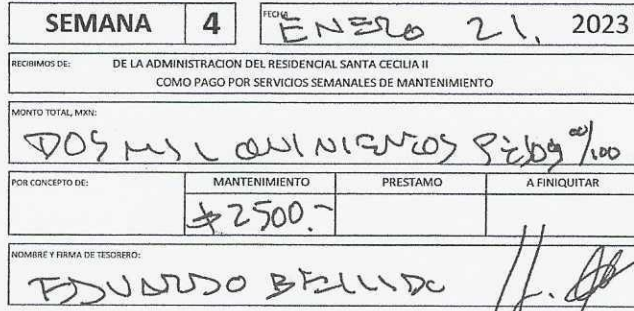 SEMANA 4 FECHA ENERO 21, 2023
RECIBIMOS DE: DE LA ADMINISTRACION DEL RESIDENCIAL SANTA CECILIA II
COMO PAGO POR SERVICIOS SEMANALES DE MANTENIMIENTO
MONTO TOTAL, MXN:
DOS MIL QUINIENTOS PESOS 00/100
POR CONCEPTO DE: MANTENIMIENTO PRESTAMO A FINIQUITAR
$2500.-
NOMBRE Y FIRMA DE TESORERO:
EDUARDO BELLIDO